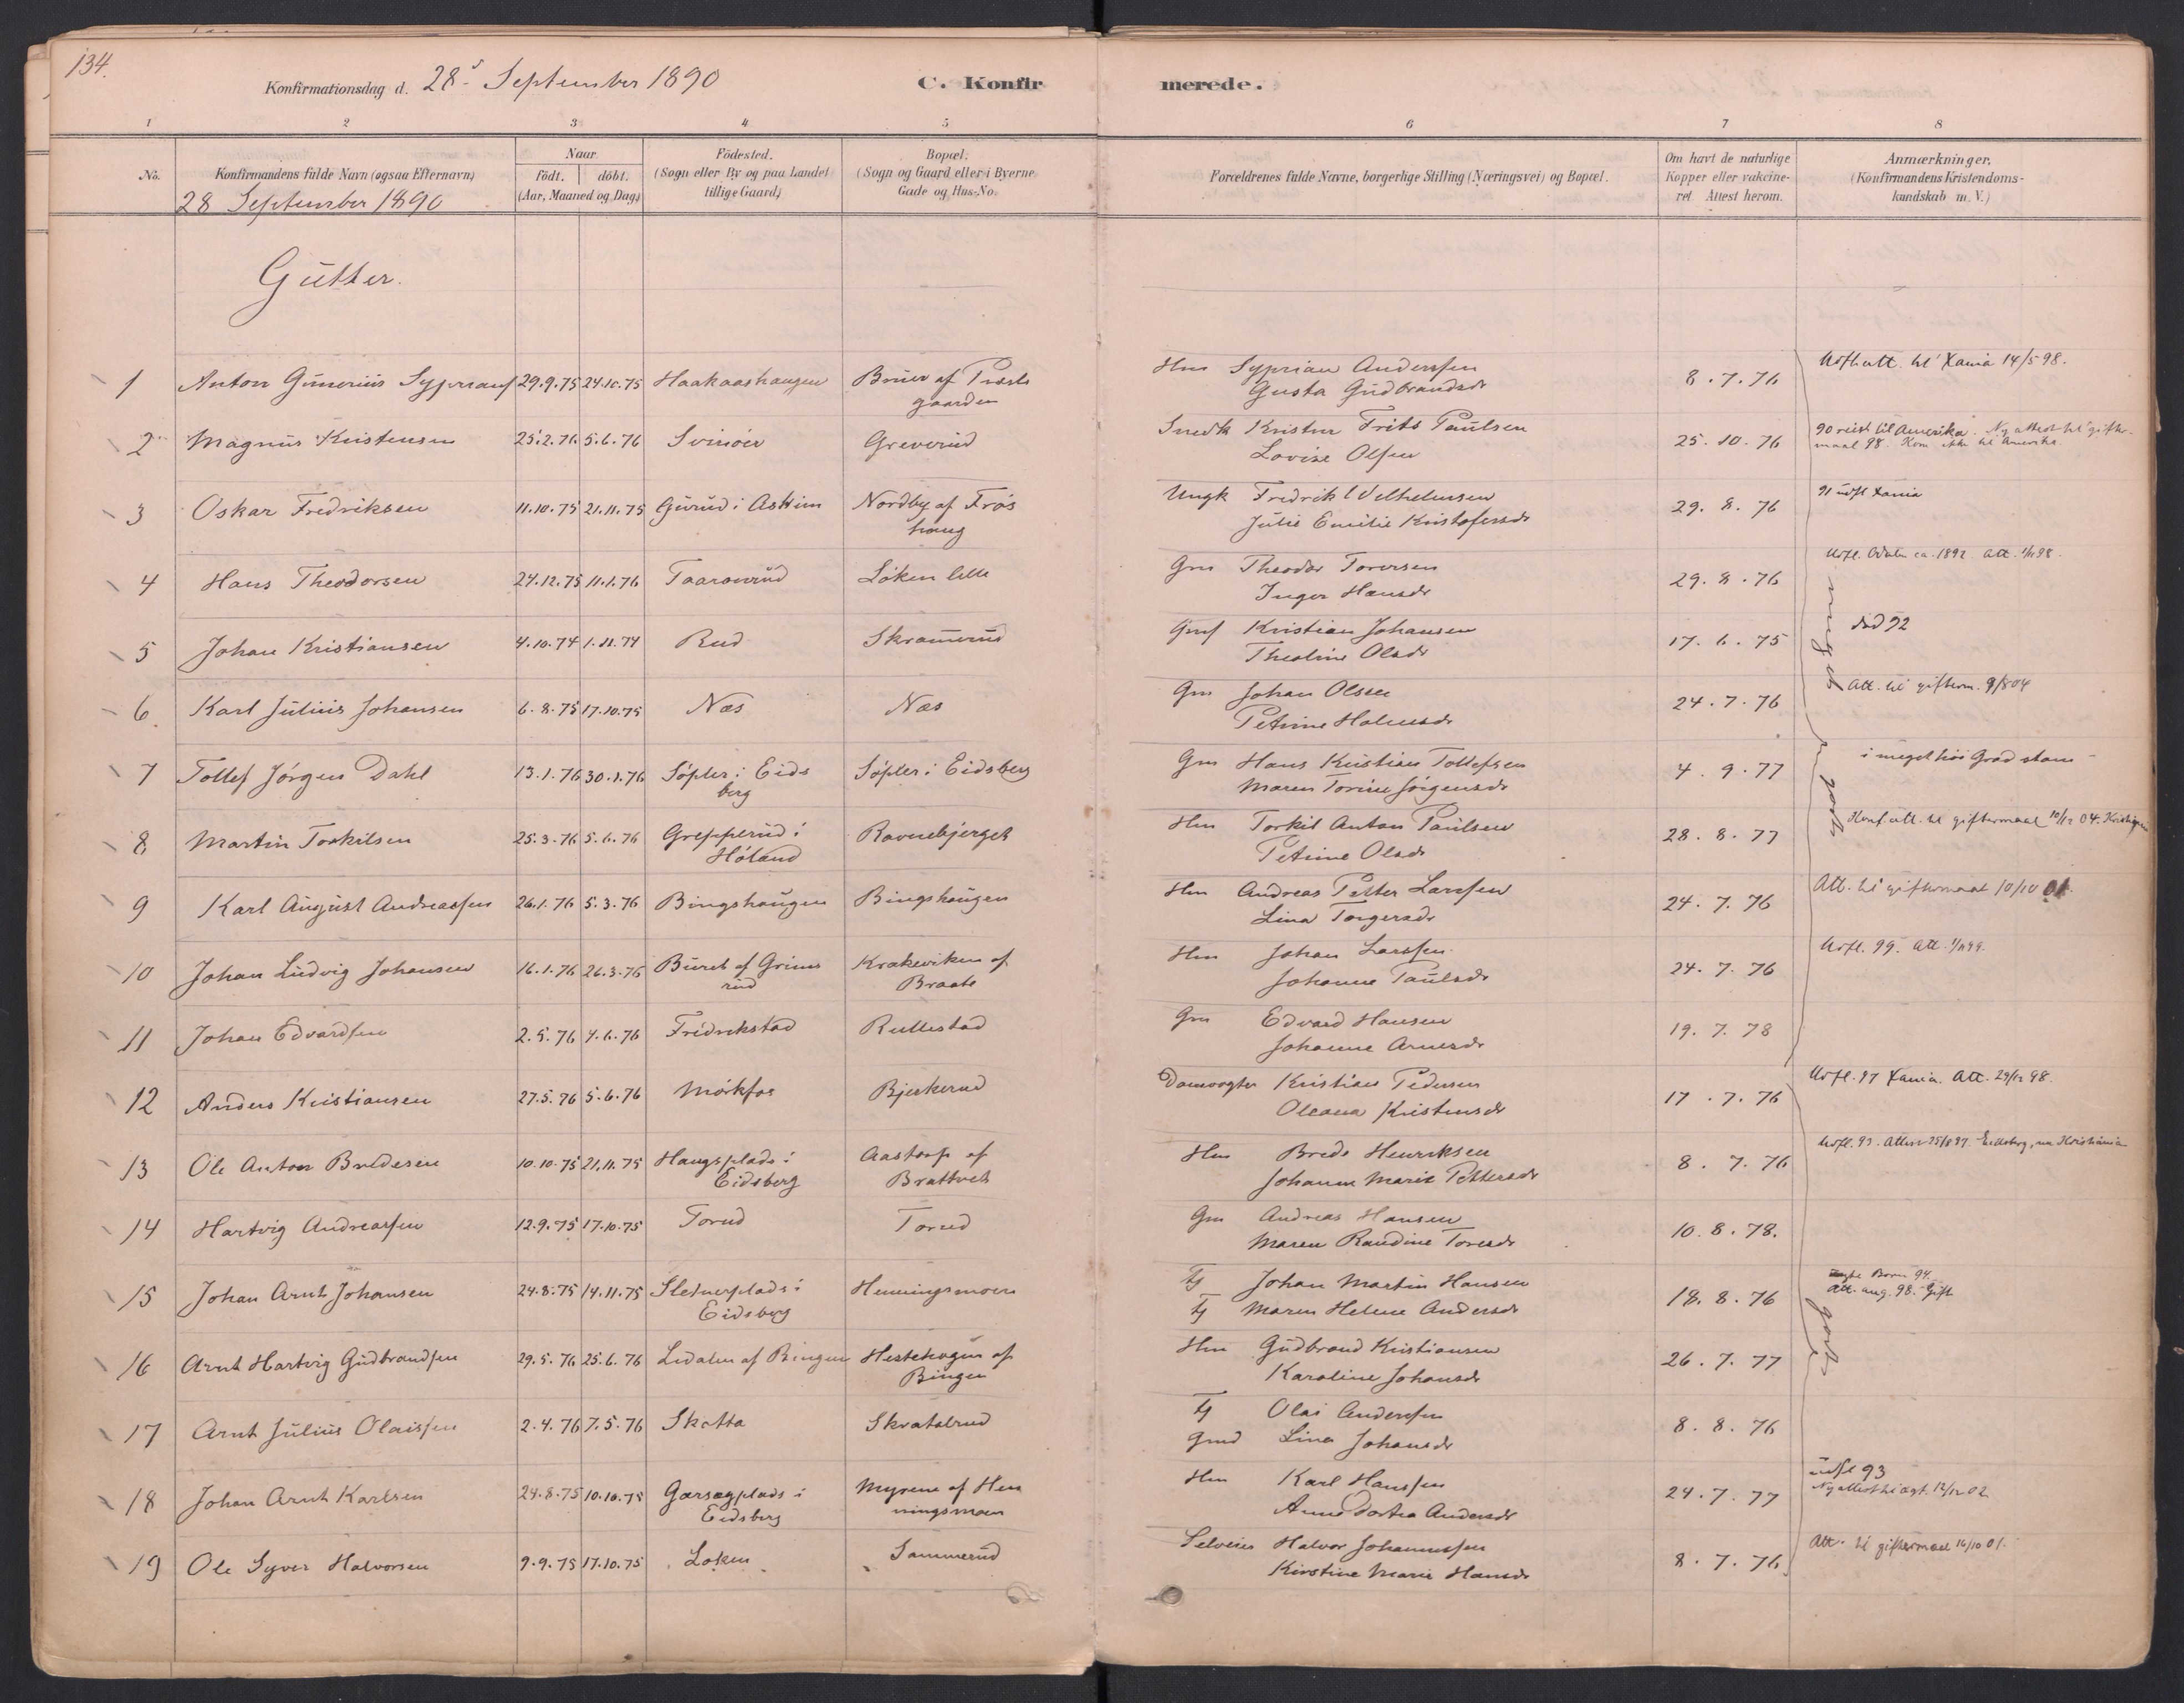 134.
Konfirmationsdag d. 28de September 1890
C. Konfirmerede.
1 2 3 4 5 6 7 8
No. Konfirmandens fulde Navn (ogsaa Efternavn) Naar Födt. döbt. (Aar, Maaned og Dag) Födested. (Sogn eller By og paa Landet tillige Gaard) Bopæl. (Sogn og Gaard eller i Byerne Gade og Hus-No. Forældrenes fulde Navne, borgerlige Stilling (Næringsvei) og Bopæl. Om havt de naturlige Kopper eller vakcineret Attest herom. Anmærkninger. (Konfirmandens Kristendomskundskab m. V.)
28 September 1890
Gutter.
1 Anton Gunerius Syprians 29.9.75 24.10.75 Haakaashaugen Bruer af Præstegaarden Hm Syprian Anderssen Gusta Gudbrandsdr 8.7.76 Udfl. att. til Xania 14/5 98.
2 Magnus Kristensen 25.2.76 5.6.76 Svinöer Greverud Snedk Kristen Frits Paulsen Lovise Olsen 25.10.76 90 reist til Amerika. Ny attest til giftermaal 98. Kom ikke til Amerika.
3 Oskar Fredriksen 11.10.75 21.11.75 Gurud i Askim Nordby af Fröshaug Ungk Fredrik Vilhelmsen Julie Emilie Kristofersdr 29.8.76 91 udfl Xania
4 Hans Theodorsen 24.12.75 11.1.76 Taaraverud Löken lille Gm Theodor Torersen Inger Hansdr 29.8.76 Udfl. ca. 1892 Att.
5 Johan Kristiansen 4.10.74 1.11.74 Rud Skramerud Kristian Johansen Theoline Olsdr 17.6.75 död 92
6 Karl Julius Johansen 6.8.75 17.10.75 Næs Næs Gm Johan Olsen Petrine Holmsdr 24.7.76 Att. til gifterm. 9/8 04
meget godt
7 Tollef Jörgen Dahl 13.1.76 30.1.76 Söpler i Eidsberg Söpler i Eidsberg Gm Hans Kristian Tollefsen Maren Torine Jörgensdr 4.9.77 i meget höi Grad stam-
8 Martin Torkilsen 25.3.76 5.6.76 Grepperud i Höland Ravnebjerget Hm Torkil Anton Paulsen Petrine Olsdr 28.8.77 Konf.att. til giftermaal 10/12 04.
9 Karl August Andreassen 26.1.76 5.3.76 Bingshaugen Bingshaugen Hm Andreas Petter Larssen Lina Torgersdr 24.7.76 Att. til giftermaal 10/10 01.
10 Johan Ludvig Johansen 16.1.76 26.3.76 Buret af Grimsrud Krakeviken af Braate Hm Johan Larssen Johanne Paulsdr 24.7.76 Udfl. 99. Att.
11 Johan Edvardsen 2.5.76 4.6.76 Fridrikstad Rullestad Gm Edvard Hansen Johanne Arnesdr 19.7.78
12 Anders Kristiansen 27.5.76 5.6.76 Mörkfos Bjerkerud Damvogter Kristian Pedersen Oleana Kristensdr 17.7.76 Udfl. 97 Xania. Att. 29/12 98.
13 Ole Anton Bredesen 10.10.75 21.11.75 Haugsplads i Eidsberg Aastorp af Brattvet Hm Brede Henriksen Johanne Marie Pettersdr 8.7.76 Udfl. 93. Attest 25/8 97. Eidsberg, nu Kristiania
14 Hartvig Andreassen 12.9.75 17.10.75 Torud Torud Gm Andreas Hansen Maren Randine Toresdr 10.8.78.
15 Johan Arnt Johansen 24.8.75 14.11.75 Sletnerplads i Eidsberg Henningsmoen Tj Johan Martin Hansen Tj Maren Helene Andersdr 18.8.76 94. Att. aug. 98. Gift
godt
16 Arnt Hartvig Gudbrandsen 29.5.76 25.6.76 Lidalen af Bingen Hestehagen af Bingen Hm Gudbrand Kristiansen Karoline Johansdr 26.7.77
17 Arnt Julius Olaissen 2.4.76 7.5.76 Skotta Skratalrud Tj Olai Anderssen Gmd Lina Johansdr 8.8.76
18 Johan Arnt Karlsen 24.8.75 10.10.75 Garsegplads i Eidsberg Myrene af Henningsmoen Hm Karl Hanssen Anne Dortea Andersdr 24.7.77 udfl 93 Ny attest til ægt. 12/12 02
19 Ole Syver Halvorsen 9.9.75 17.10.75 Löken Sammerud Selveier Halvor Johannessen Kirstine Marie Hansdr 8.7.76 Att. til giftermaal 16/10 01.